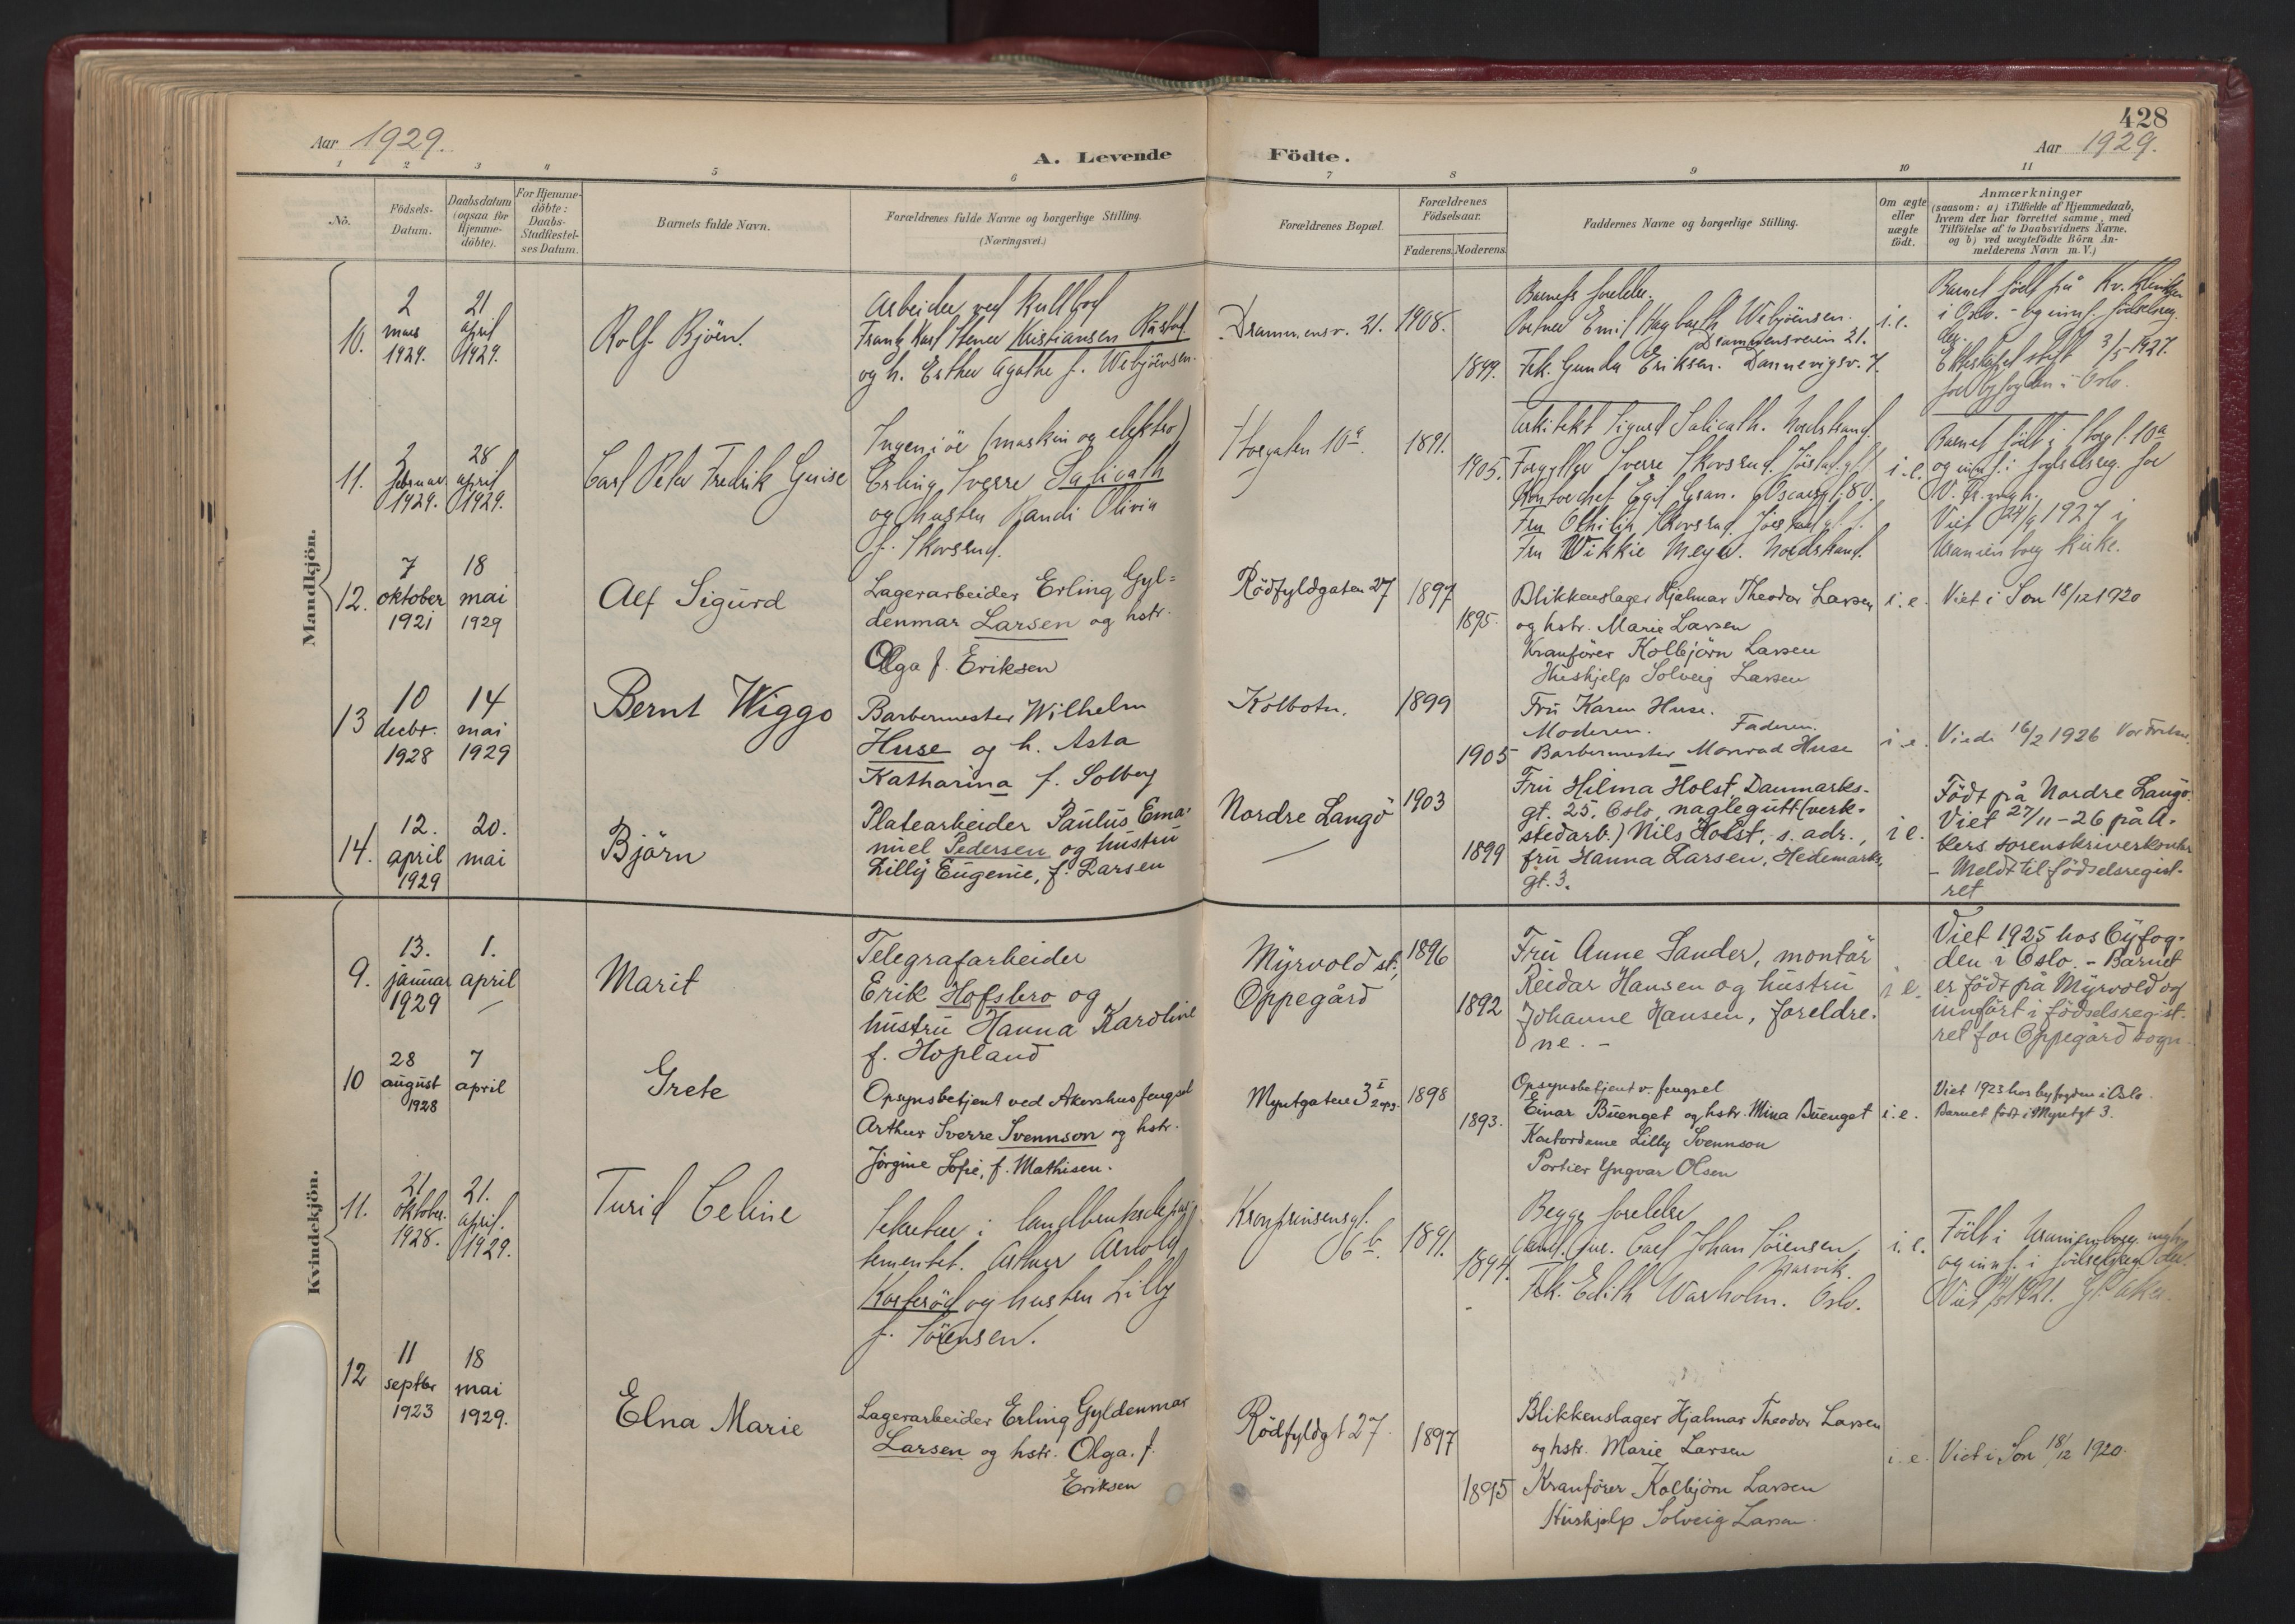 428
Aar 1929.
A. Levende Födte.
Aar 1929.
1 2 3 4 5 6 7 8 9 10 11
No.
Födsels-
Datum.
Daabsdatum
(ogsaa for
Hjemme-
döbte).
For Hjemme-
döbte:
Daabs-
Stadfestel-
ses Datum.
Barnets fulde Navn.
Forældrenes fulde Navne og borgerlige Stilling.
(Næringsvei.)
Forældrenes Bopæl.
Forældrenes
Födselsaar.
Faderens. Moderens.
Faddernes Navne og borgerlige Stilling.
Om ægte
eller
uægte
födt.
Anmærkninger
(saasom: a) i Tilfælde af Hjemmedaab,
hvem der har forrettet samme, med
Tilföielse af to Daabsvidners Navne.
og b) ved uægtefödte Börn An-
melderens Navn m. V.)
Mandkjön.
10.
2
mars
1929.
21
april
1929.
Rolf Björn.
Arbeider ved
Frantz Karl Stener Kristiansen
og h. Esther Agathe f. Webjörnsen.
Drammensv. 21.
1908.
1899.
Barnets foreldre.
Emil Webjörnsen.
Drammensveien 21.
Frk. Gunda Eriksen. Dannevigsv. 7.
i.e.
Barnet födt på Kv. klinikken
i Oslo. - og innf. födselsreg.
der.
Ekteskapet stift 3/5-1927.
for byfogden i Oslo.
11.
2
februar
1929.
28
april
1929.
Carl Peter Fredrik Guise
Ingeniör (maskin og elektro)
Erling Sverre Salicath
og hustru Randi Olivia
f. Skovsrud.
Storgaten 10a.
1891.
1905.
Arkitekt Sigurd Salicath. Nordstrand.
Forgyller Sverre Skovsrud.
Kontorchef Egil Gran. Oscarsgt. 80.
Fru Othilia Skovsrud.
Fru Wikkie Meyer. Nordstrand.
i.e.
Barnet födt i Storgt. 10a
og innf. i födselsreg. for
Viet 1927 i
Uranienborg kirke.
12.
7
oktober
1921
18
mai
1929
Alf Sigurd
Lagerarbeider Erling Gyl=
denmar Larsen og hstr.
Olga f. Eriksen
Rödfyldgaten 27
1897
1895.
Blikkenslager Hjalmar Theodor Larsen
og hstr. Marie Larsen
Kranförer Kolbjörn Larsen
Hushjelp Solveig Larsen
i.e.
Viet i Son 18/12 1920
13
10
decbr.
1928
14
mai
1929
Bernt Wiggo
Barbermester Wilhelm
Huse og h. Asta
Katharina f. Solberg
Kolbotn.
1899
1905
Fru Karen Huse.
Moderen. Faderen.
Barbermester Monrad Huse
i.e.
Viede 16/2 1926 Vor Frelser.
14.
12.
april
1929
20.
mai
Björn
Platearbeider Paulus Ema-
nuel Pedersen og hustru
Lilly Eugenie, f. Larsen
Nordre Langö
1903
1899
Fru Hilma Holst, Danmarks-
gt. 25, Oslo, naglegutt (verk-
stedarb.) Nils Holst, s. adr.,
fru Hanna Larsen, Hedemarks-
gt. 3.
i e.
Födt på Nordre Langö.
Viet 27/11-26 på A-
kers sorenskriverkontor
- Meldt til födselsregist-
ret
Kvindekjön.
9.
13.
januar
1929
1.
april
Marit
Telegrafarbeider
Erik Hofsbro og
hustru Hanna Karoline
f. Hopland
Myrvold st.,
Oppegård
1896
1892
Fru Anne Sander, montör
Reidar Hansen og hustru
Johanne Hansen, foreldre-
ne. -
i e.
Viet 1925 hos Byfog-
den i Oslo. - Barnet
er födt på Myrvold og
innfört i födselsregist-
ret for Oppegård sogn.
10
28
august
1928
7
april
Grete
Opsynsbetjent ved Akershus fengsel
Arthur Sverre Svennson og hstr.
Jörgine Sofie, f. Mathisen.
Myntgaten 3 I
1898
1893.
Opsynsbetjent v. fengsel
Einar Buenget og hstr. Mina Buenget
Kontordame Lilly Svennson
Portier Yngvar Olsen
i.e.
Viet 1923 hos byfogden i Oslo.
Barnet födt i Myntgt 3.
11.
21
oktober.
1928.
21.
april.
1929.
Turid Celine
Sekretær i landbruksdepar-
tementet. Arthur Arnold
Korterød og hustru Lilly
f. Sörensen.
Kronprinsensgt.
6b.
1891.
1894.
Begge foreldre
Cand. jur. Carl Johan Sörensen,
Narvik.
Frk. Edith Warholm. Oslo.
i.e.
Födt i Uranienborg mgh.
og innf. i födselsreg. der.
Viet 1921. Gl. Aker.
12
11
septbr
1923
18
mai
1929.
Elna Marie
Lagerarbeider Erling Gyldenmar
Larsen og hstr. Olga. f.
Eriksen
Rödfyldgt 27.
1897
1895
Blikkenslager Hjalmar Theodor Larsen
og hstr. Marie Larsen
Kranförer Kolbjörn Larsen
Hushjelp Solveig Larsen.
i.e.
Viet i Son 18/12 1920.